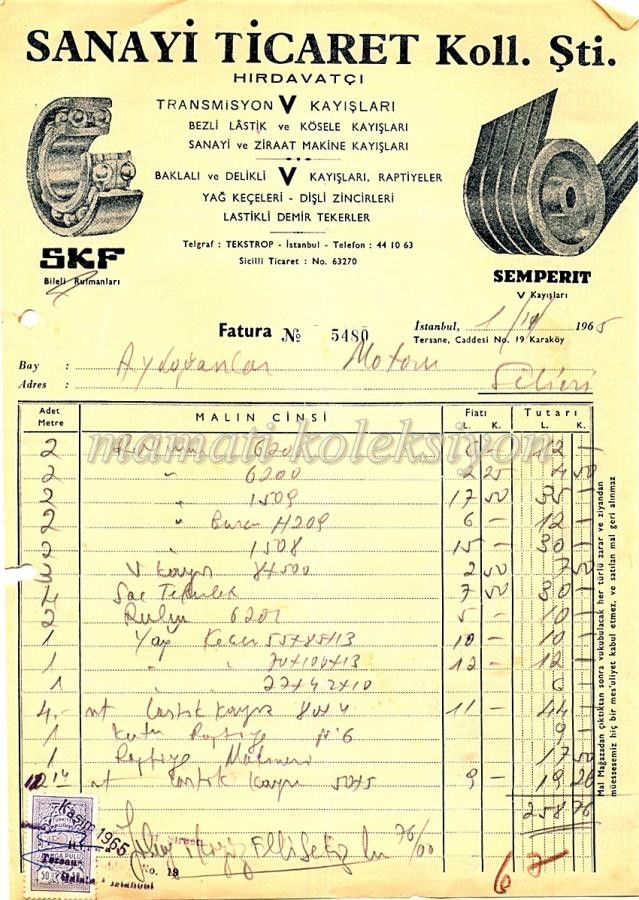 SANAYİ TİCARET Koll. Şti.
HIRDAVATÇI
TRANSMİSYON V KAYIŞLARI
BEZLİ LÂSTİK ve KÖSELE KAYIŞLARI
SANAYİ ve ZİRAAT MAKİNE KAYIŞLARI
BAKLALI ve DELİKLİ V KAYIŞLARI, RAPTİYELER
YAĞ KEÇELERİ - DİŞLİ ZİNCİRLERİ
LASTİKLİ DEMİR TEKERLER
SKF
Bileli Rulmanları
SEMPERIT
V Kayışları
Telgraf : TEKSTROP - İstanbul - Telefon : 44 10 63
Sicilli Ticaret : No. 63270
Fatura № 5480
İstanbul, 1965
Tersane, Caddesi No. 19 Karaköy
Bay : Aydoğanlar Motoru
Adres : Silivri
Adet Metre MALIN CİNSİ Fiatı L. K. Tutarı L. K.
mamati koleksiyon
2 620 6 - 12 -
2 " 6200 2 25 4 50
2 " 1509 17 50 35 -
2 " H209 6 - 12 -
2 " 1508 15 - 30 -
3 V kayış 8x500 2 50 7 50
4 Saç 7 50 30 -
2 Rulman 5 - 10 -
1 Yağ Keçesi 55x85x13 10 - 10 -
1 " " 70x100x13 12 - 12 -
1 " 22x42x10 6 -
4,- mt lastik kayış 80x4 11 - 44 -
1 kutu Raptiye N:6 9 -
1 Raptiye Makinesi 17 50
2 14 mt lastik kayış 50x5 9 - 19 26
258 76
Mal Mağazadan çıktıktan sonra vukubulacak her türlü zarar ve ziyandan
müessesemiz hiç bir mes'uliyet kabul etmez, ve satılan mal geri alınmaz
Kasım 1965
Elli Sekiz 76/00
No. 19